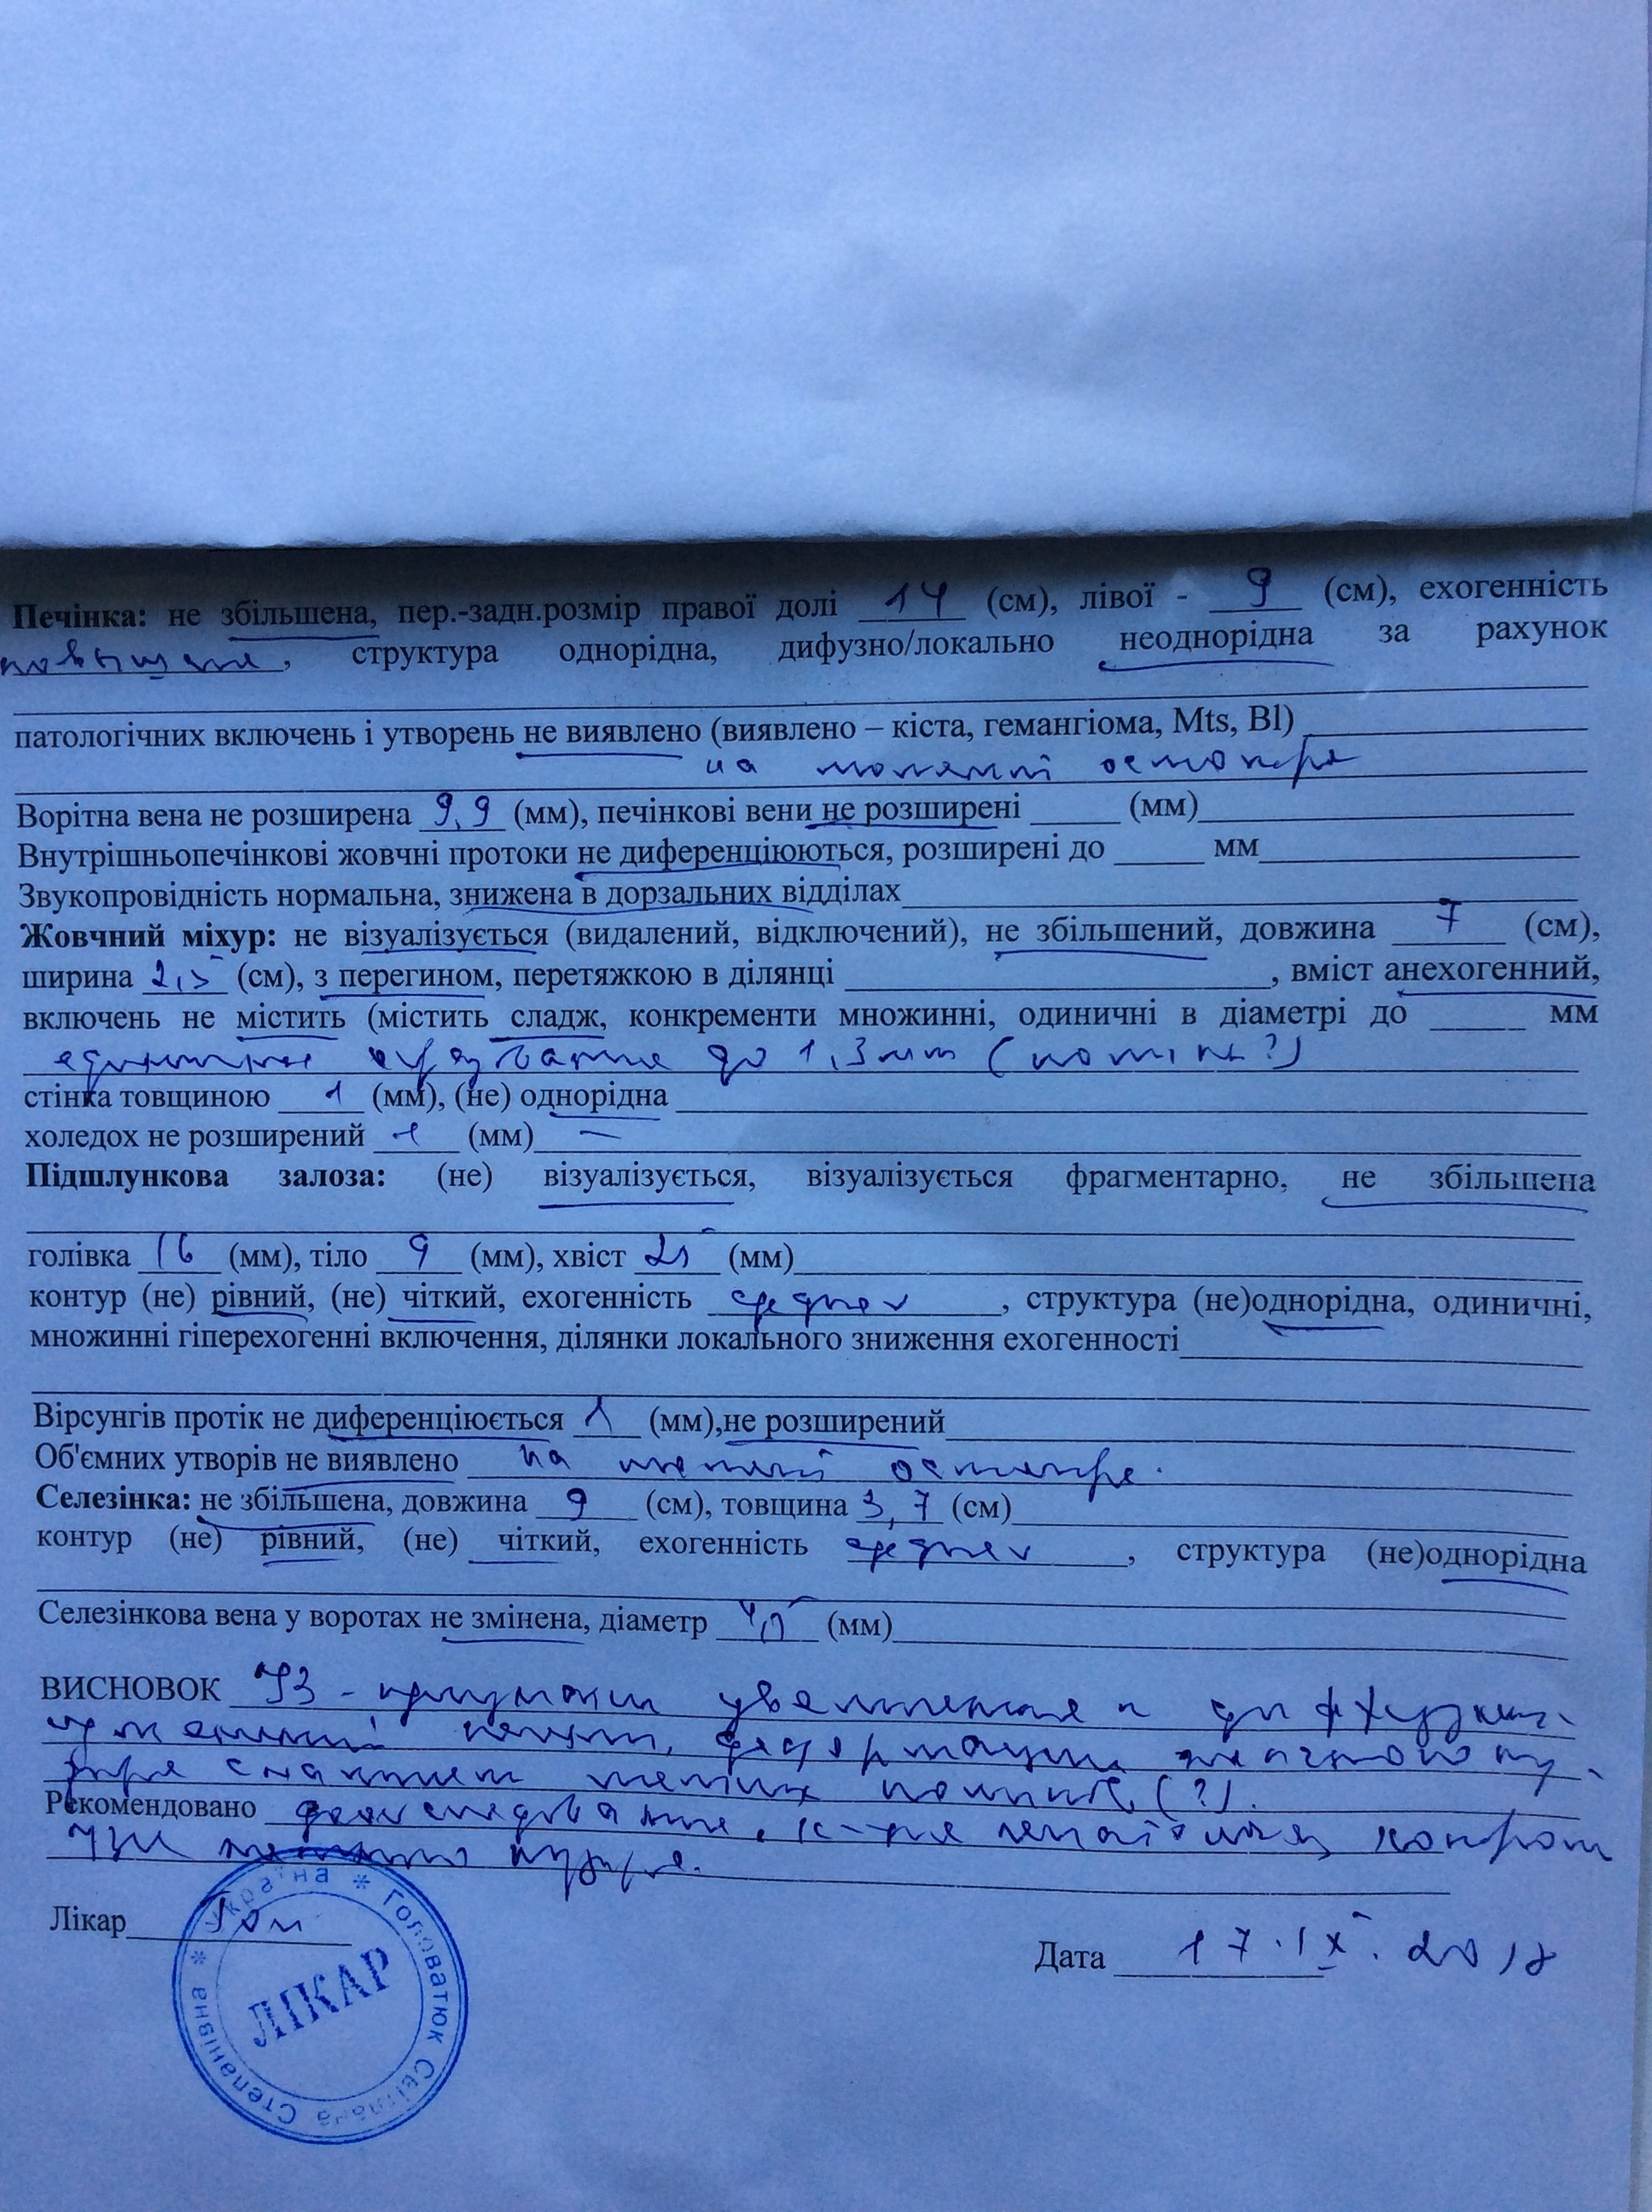 Печінка: не збільшена, пер.-задн.розмір правої долі 14 (см), лівої - 9 (см), ехогенність
повышена, структура однорідна, дифузно/локально неоднорідна за рахунок
патологічних включень і утворень не виявлено (виявлено – кіста, гемангіома, Mts, Bl)
на момент осмотра
Ворітна вена не розширена 9,9 (мм), печінкові вени не розширені (мм)
Внутрішньопечінкові жовчні протоки не диференціюються, розширені до мм
Звукопровідність нормальна, знижена в дорзальних відділах
Жовчний міхур: не візуалізується (видалений, відключений), не збільшений, довжина 7 (см),
ширина 2,5 (см), з перегином, перетяжкою в ділянці , вміст анехогенний,
включень не містить (містить сладж, конкременти множинні, одиничні в діаметрі до мм
до 1,3 мм
стінка товщиною 1 (мм), (не) однорідна
холедох не розширений (мм) –
Підшлункова залоза: (не) візуалізується, візуалізується фрагментарно, не збільшена
голівка 16 (мм), тіло 9 (мм), хвіст (мм)
контур (не) рівний, (не) чіткий, ехогенність средняя, структура (не)однорідна, одиничні,
множинні гіперехогенні включення, ділянки локального зниження ехогенності
Вірсунгів протік не диференціюється 1 (мм),не розширений
Об'ємних утворів не виявлено на момент осмотра.
Селезінка: не збільшена, довжина 9 (см), товщина 3,7 (см)
контур (не) рівний, (не) чіткий, ехогенність средняя, структура (не)однорідна
Селезінкова вена у воротах не змінена, діаметр (мм)
ВИСНОВОК УЗ-признаки увеличения и диффузных
изменений печени, деформации желчного пу-
зыря с наличием мелких (?).
Рекомендовано дообследование, контроль
УЗИ желчного пузыря.
Лікар
Дата 17.IX.2018
Україна * Головатюк Світлана Степанівна *
ЛІКАР